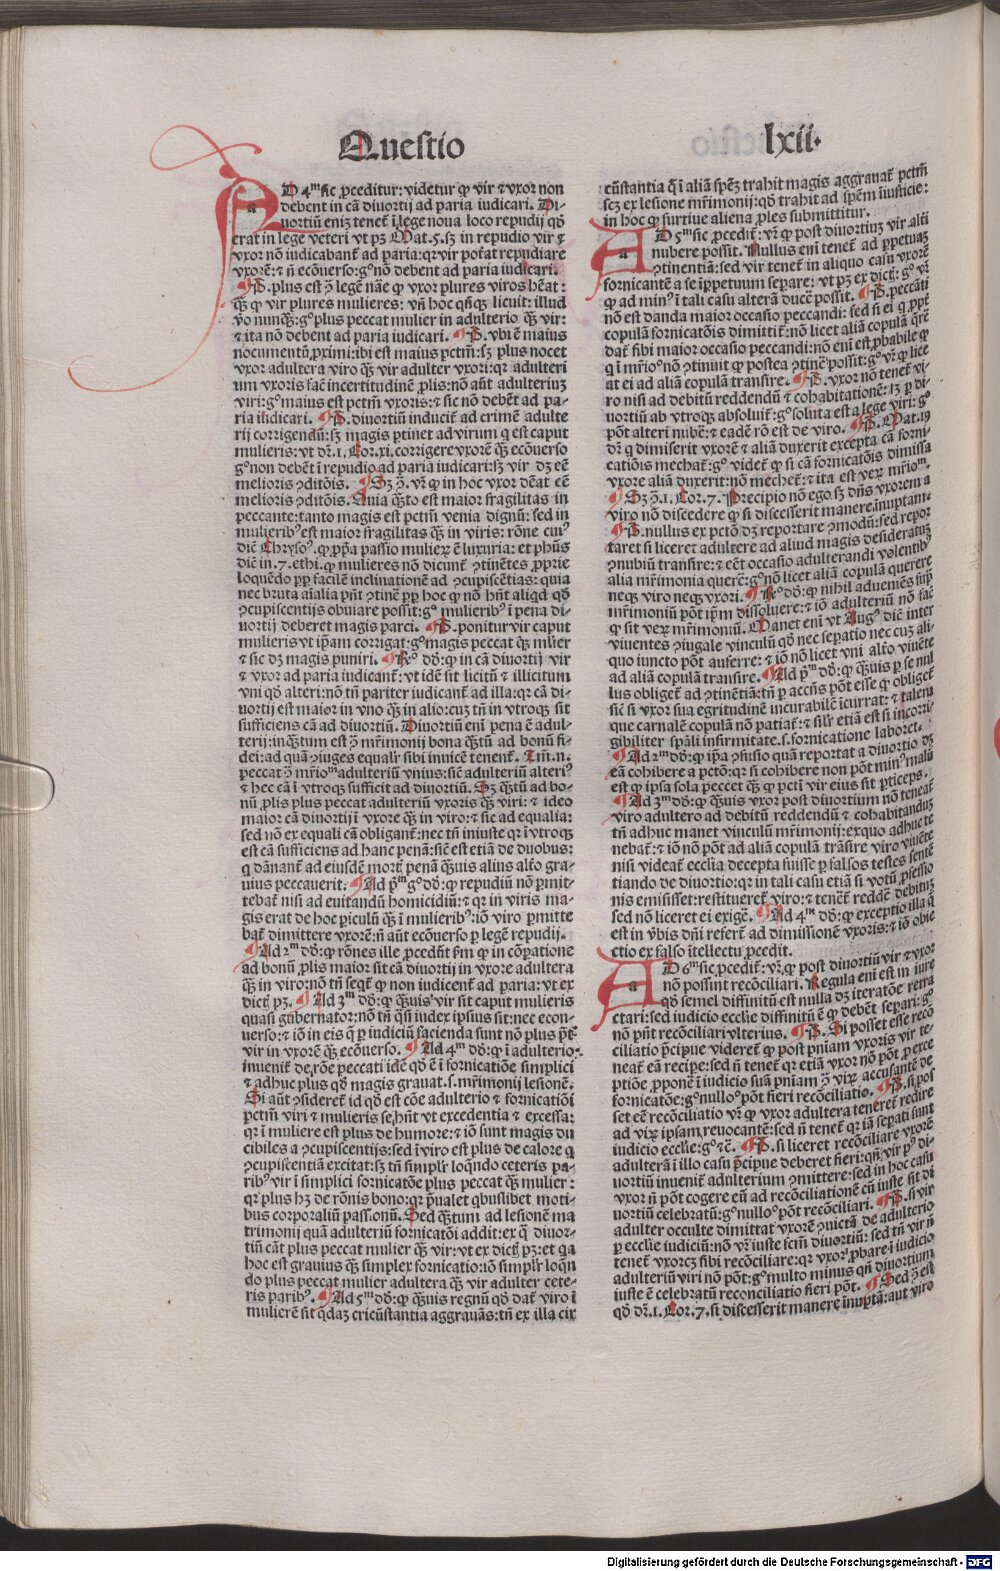 Questio
lxii.
AD 4ᵐ sic ꝓceditur: videtur ꝙ vir ⁊ vxor non
debent in cā diuortij ad paria iudicari. Di-
uortiū eniʒ tenet̄ ī lege noua loco repudij qd̄
erat in lege veteri vt pʒ Mat. 5. sʒ in repudio vir ⁊
vxor nō iudicabant̄ ad paria: qꝛ vir poterat repudiare
vxorē: ⁊ nō ecōuerso: gͦ nō debent ad paria iudicari.
¶ P. plus est ꝯ legē nāe ꝙ vxor plures viros hēat:
qͣꝫ ꝙ vir plures mulieres: vn̄ hoc qn̄qꝫ licuit: illud
ꝟo nunqͣꝫ: gͦ plus peccat mulier in adulterio qͣꝫ vir:
⁊ ita nō debent ad paria iudicari. ¶ P. vbi ē maius
nocumentū ꝓximi: ibi est maius pctm̄: sʒ plus nocet
vxor adultera viro qͣꝫ vir adulter vxori: qꝛ adulteri
um vxoris fac̄ incertitudinē ꝓlis: nō aūt adulteriuʒ
viri: gͦ maius est pctm̄ vxoris: ⁊ sic nō debēt ad pa-
ria iudicari. ¶ P. diuortiū inducit̄ ad crimē adulte
rij corrigendū: sʒ magis ꝑtinet ad virum q̄ est caput
mulieris: vt dr̄. 1. Cor. xi. corrigere vxorē qͣꝫ ecōuerso
gͦ non debēt ī repudio ad paria iudicari: sʒ vir dʒ eē
melioris ꝯditōis. ¶ Sʒ ꝯͣ. vr̄ ꝙ in hoc vxor dēat eē
melioris ꝯditōis. Quia qͣꝫto est maior fragilitas in
peccante: tanto magis est pctm̄ venia dignū: sed in
mulieribꝰ est maior fragilitas qͣꝫ in viris: rōne cuiꝰ
dic̄ Chrysoˢ. ꝙ ꝓpͣa passio mulieꝝ ē luxuria: et phūs
dic̄ in. 7. ethi. ꝙ mulieres nō dicunt̄ ꝯtinētes ꝓprie
loquēdo ꝓp̄ facilē inclinationē ad ꝯcupiscētias: quia
nec bruta aīalia pn̄t ꝯtinē ꝓp̄ hoc ꝙ nō hn̄t aliqd qd̄
ꝯcupiscentijs obuiare possit: gͦ mulieribꝰ ī pena di-
uortij deberet magis parci. ¶ P. ponitur vir caput
mulieris vt ip̄am corrigat: gͦ magis peccat qͣꝫ mlier
⁊ sic dʒ magis puniri. ¶ Rͦ dd̄: ꝙ in cā diuortij vir
⁊ vxor ad paria iudicant̄: vt idē sit licitū ⁊ illicitum
vni qd̄ alteri: nō tn̄ pariter iudicant̄ ad illa: qꝛ cā di-
uortij est maior in vno qͣꝫ in alio: cuʒ tn̄ in vtroqꝫ sit
sufficiens cā ad diuortiū. Diuortiū eni pena ē adul-
terij: inqͣꝫtum est ꝯ mr̄imonij bona qͣꝫtū ad bonū fi-
dei: ad quā ꝯiuges equalr̄ sibi inuicē tenent̄. Tm̄. n.
peccat ꝯ mr̄ioᵐ adulteriū vnius: sic̄ adulteriū alteriꝰ
⁊ hec cā ī vtroqꝫ sufficit ad diuortiū. Sʒ qͣꝫtū ad bo-
nū ꝓlis plus peccat adulteriū vxoris qͣꝫ viri: ⁊ ideo
maior cā diuortij ī vxore qͣꝫ in viro: ⁊ sic ad equalia:
sed nō ex equali cā obligant̄: nec tn̄ iniuste qꝛ ī vtroqꝫ
est cā sufficiens ad hanc penā: sic̄ est etiā de duobus:
q̄ dānant̄ ad eiusdē mort̄ penā qͣꝫuis alius altͦo gra-
uius peccauerit. ¶ Ad pͫ gͦ dd̄: ꝙ repudiū nō ꝑmit-
tebat̄ nisi ad euitandū homicidiū: ⁊ qꝛ in viris ma-
gis erat de hoc ꝑiculū qͣꝫ ī mulieribꝰ: iō viro ꝑmitte
bat̄ dimittere vxorē: nō aūt ecōuerso ꝑ legē repudij.
¶ Ad 2ᵐ dd̄: ꝙ rōnes ille ꝓcedūt ꝑm ꝙ in cōꝑatione
ad bonū ꝓlis maior sit cā diuortij in vxore adultera
qͣꝫ in viro: nō tn̄ seqͣt̄ ꝙ non iudicent̄ ad paria: vt ex
dict̄ pʒ. ¶ Ad 3ᵐ dd̄: ꝙ qͣꝫuis vir sit caput mulieris
quasi gubernator: nō tn̄ qͣsi iudex ipsius sit: nec econ-
uerso: ⁊ iō in eis q̄ ꝑ iudiciū facienda sunt nō plus pōt
vir in vxorē qͣꝫ ecōuerso. ¶ Ad 4ᵐ dd̄: ꝙ ī adulterio
inuenit̄ de rōe peccati idē qd̄ ē ī fornicatiōe simplici
⁊ adhuc plus qd̄ magis grauat. s. mr̄imonij lesionē.
Si aūt ꝯsideret̄ id qd̄ est cōe adulterio ⁊ fornicatiōi
pctm̄ viri ⁊ mulieris se hn̄t vt excedentia ⁊ excessa:
qꝛ ī muliere est plus de humore: ⁊ iō sunt magis du
cibiles a ꝯcupiscentijs: sed ī viro est plus de calore q̄
ꝯcupiscentiā excitat: sʒ tn̄ simplr̄ loqndo ceteris pa-
ribꝰ vir ī simplici fornicatōe plus peccat qͣꝫ mulier:
qꝛ plus hʒ de rōnis bono: qꝛ p̄ualet qbuslibet moti-
bus corporaliū passionū. Sed qͣꝫtum ad lesionē ma
trimonij quā adulteriū fornicatōi addit: ex q̄ diuor-
tiū cāt̄ plus peccat mulier qͣꝫ vir: vt ex dict̄ pʒ: et qa
hoc est grauius qͣꝫ simplex fornicatio: iō simplr̄ loqn̄
do plus peccat mulier adultera qͣꝫ vir adulter cete-
ris paribꝰ. ¶ Ad 5ᵐ dd̄: ꝙ qͣꝫuis regnū qd̄ dat̄ viro ī
mulierē sit qͣdaʒ circūstantia aggrauās: tn̄ ex illa cir
cūstantia q̄ ī aliā spēʒ trahit magis aggrauat̄ pctm̄
scʒ ex lesione mr̄imonij: qd̄ trahit ad spēm iusticie:
in hoc ꝙ furtiue aliena ꝓles submittitur.
AD 5ᵐ sic ꝓcedit̄: vr̄ ꝙ post diuortiuʒ vir alti
nubere possit. Nullus eni tenet̄ ad ꝑpetuaʒ
ꝯtinentiā: sed vir tenet̄ in aliquo casu vxorē
fornicantē a se īꝑpetuum separe: vt pʒ ex dict̄: gͦ vr̄
ꝙ ad minꝰ ī tali casu alterā ducē possit. ¶ P. peccāti
nō est danda maior occasio peccandi: sed si ei q̄ ꝓp̄t
copulā fornicatōis dimittit̄: nō licet aliā copulā qrē
dat̄ sibi maior occasio peccandi: nō eni est ꝓbabile ꝙ
q ī mr̄ioͦ nō ꝯtinuit ꝙ postea ꝯtinē possit: gͦ vr̄ ꝙ lice
at ei ad aliā copulā transire. ¶ P. vxor nō tenet̄ vi-
ro nisi ad debitū reddendū ⁊ cohabitationē: sʒ ꝑ di-
uortiū ab vtroqꝫ absoluit̄: gͦ soluta est a lege viri: gͦ
pōt alteri nubē: ⁊ eadē rō est de viro. ¶ P. Mat. 19
dr̄ q dimiserit vxorē ⁊ aliā duxerit excepta cā forni
catiōis mechat̄: gͦ videt̄ ꝙ si cā fornicatōis dimissa
vxore aliā duxerit: nō mechet̄: ⁊ ita est veꝝ mr̄ioᵐ.
¶ Sʒ ꝯͣ. 1. Cor. 7. Precipio nō ego sʒ dn̄s vxorem a
viro nō discedere ꝙ si discesserit manere inuptam.
¶ P. nullus ex pctō dʒ reportare ꝯmodū: sed repor
taret si liceret adultere ad aliud magis desideratuʒ
ꝯnubiū transire: ⁊ eēt occasio adulterandi volentibꝰ
alia mr̄imonia querē: gͦ nō licet aliā copulā querere
neqꝫ viro neqꝫ vxori. ¶ Rͦ dd̄: ꝙ nihil adueniēs suꝑ
mr̄imoniū pōt ip̄m dissoluere: ⁊ iō adulteriū nō fac̄
ꝙ sit veꝝ mr̄imoniū. Manet eni vt Augꝰ dic̄ inter
viuentes ꝯiugale vinculū qd̄ nec sepatio nec cuʒ ali-
quo iuncto pōt auferre: ⁊ iō nō licet vni altͦo viuēte
ad aliā copulā transire. ¶ Ad pͫ dd̄: ꝙ qͣꝫuis ꝑ se nul
lus obliget̄ ad ꝯtinētiā: tn̄ ꝑ accn̄s pōt esse ꝙ obliget̄
sic̄ si vxor sua egritudinē incurabilē īcurrat: ⁊ talem
que carnalē copulā nō patiat̄: ⁊ silr̄ etiā est si incorri
gibiliter spāli infirmitate. s. fornicatione laboret.
¶ Ad 2ᵐ dd̄: ꝙ ip̄a ꝯfusio quā reportat a diuortio dʒ
eā cohibere a pctō: qꝛ si cohibere non pōt minꝰ malū
est ꝙ ipsa sola peccet qͣꝫ ꝙ pcti vir eius sit ꝑticeps.
¶ Ad 3ᵐ dd̄: ꝙ qͣꝫuis vxor post diuortium nō teneat̄
viro adultero ad debitū reddendū ⁊ cohabitanduʒ
tn̄ adhuc manet vinculū mr̄imonij: ex quo adhuc te
nebat̄: ⁊ iō nō pōt ad aliā copulā trāsire viro viuēte
nisi videat̄ ecclīa decepta fuisse ꝑ falsos testes sentē
tiando de diuortio: qꝛ in tali casu etiā si votū ꝓfessio
nis emisisset: restitueret̄ viro: ⁊ tenet̄ reddē debituʒ
sed nō liceret ei exigē. ¶ Ad 4ᵐ dd̄: ꝙ exceptio illa q̄
est in ꝟbis dn̄i refert̄ ad dimissionē vxoris: ⁊ iō obie
ctio ex falso ītellectu ꝓcedit.
AD 6ᵐ sic ꝓcedit̄: vr̄ ꝙ post diuortiū vir ⁊ vxor
nō possint recōciliari. Regula eni est in iure
qd̄ semel diffinitū est nulla dʒ iteratōe retra
ctari: sed iudicio ecclīe diffinitū ē ꝙ debēt separi: gͦ
nō pn̄t recōciliari vlterius. ¶ P. Si posset esse recō
ciliatio p̄cipue videret̄ ꝙ post pniam vxoris vir te-
neat̄ eā recipe: sed nō tenet̄ qꝛ etiā vxor nō pōt ꝑ exce
ptiōe ꝓponē ī iudicio suā pniam ꝯ viꝝ accusantē de
fornicatōe: gͦ nulloͦ pōt fieri recōciliatio. ¶ P. si pos
set eē recōciliatio vr̄ ꝙ vxor adultera teneret̄ redire
ad viꝝ ipsam reuocantē: sed nō tenet̄ qꝛ iā sepati sunt
iudicio ecclīe: gͦ ⁊c̄. ¶ P. si liceret recōciliare vxorē
adulterā ī illo casu p̄cipue deberet fieri: qn̄ vir pꝰ di-
uortiū inuenit̄ adulterium ꝯmittere: sed in hoc casu
vxor nō pōt cogere eū ad recōciliationē cū iuste sit di
uortiū celebratū: gͦ nulloͦ pōt recōciliari. ¶ P. si vir
adulter occulte dimittat vxorē ꝯuictā de adulterio
ꝑ ecclīe iudiciū: nō vr̄ iuste fcm̄ diuortiū: sed tn̄ vir nō
tenet̄ vxorcʒ sibi recōciliare: qꝛ vxor ꝓbare ī iudicio
adulteriū viri nō pōt: gͦ multo minus qn̄ diuortium
iuste ē celebratū reconciliatio fieri pōt. ¶ Sed ꝯͣ est
qd̄ dr̄. 1. Cor. 7. si discesserit manere īnuptā: aut viro
Digitalisierung gefördert durch die Deutsche Forschungsgemeinschaft - DFG